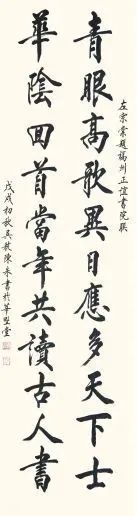 左宗棠題福州正誼書院聯
青眼高歌異日應多天下士
華陰回首當年共讀古人書
戊戌初秋吳 陳 書於華 堂